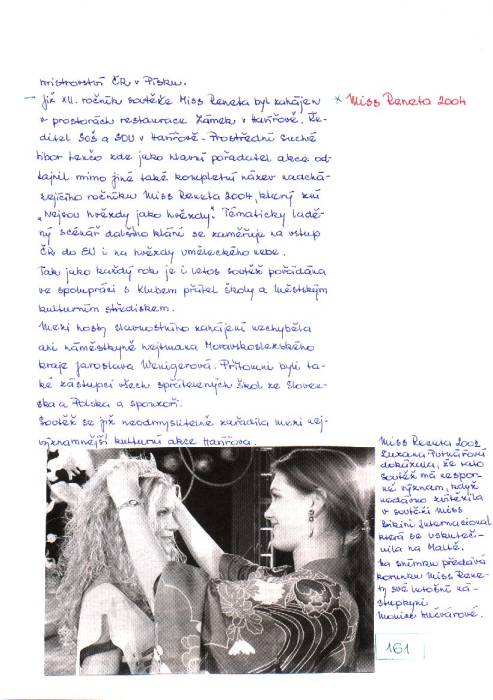 mistrovství ČR v Písku.
Již XII. ročník soutěže Miss Reneta byl zahájen
v prostorách restaurace Zámek v Havířově. Ře-
ditel SOŠ a SOU v Havířově - Prostřední Suché
Libor Lenčo zde jako hlavní pořadatel akce od-
tajnil mimo jiné také kompletní název nadchá-
zejícího ročníku Miss Reneta 2004, který zní
„Nejsou hvězdy jako hvězdy“. Tématicky ladě-
ný scénář dalšího klání se zaměřuje na vstup
ČR do EU i na hvězdy uměleckého nebe.
Tak jako každý rok je i letos soutěž pořádána
ve spolupráci s Klubem přátel školy a Městským
kulturním střediskem.
Mezi hosty slavnostního zahájení nechyběla
ani náměstkyně hejtmana Moravskoslezského
kraje Jaroslava Wenigerová. Přítomni byli ta-
ké zástupci všech spřátelených škol ze Sloven-
ska a Polska a sponzoři.
Soutěž se již neodmyslitelně zařadila mezi nej-
významnější kulturní akce Havířova.
× Miss Reneta 2004
Miss Reneta 2002
Zuzana Putnářová
dokázala, že tato
soutěž má nespor-
né význam, když
nedávno zvítězila
v soutěži Miss
Bikini Internacional,
která se uskuteč-
nila na Maltě.
Na snímku předává
korunku Miss Rene-
ty své letošní ná-
stupkyni
Monice
161